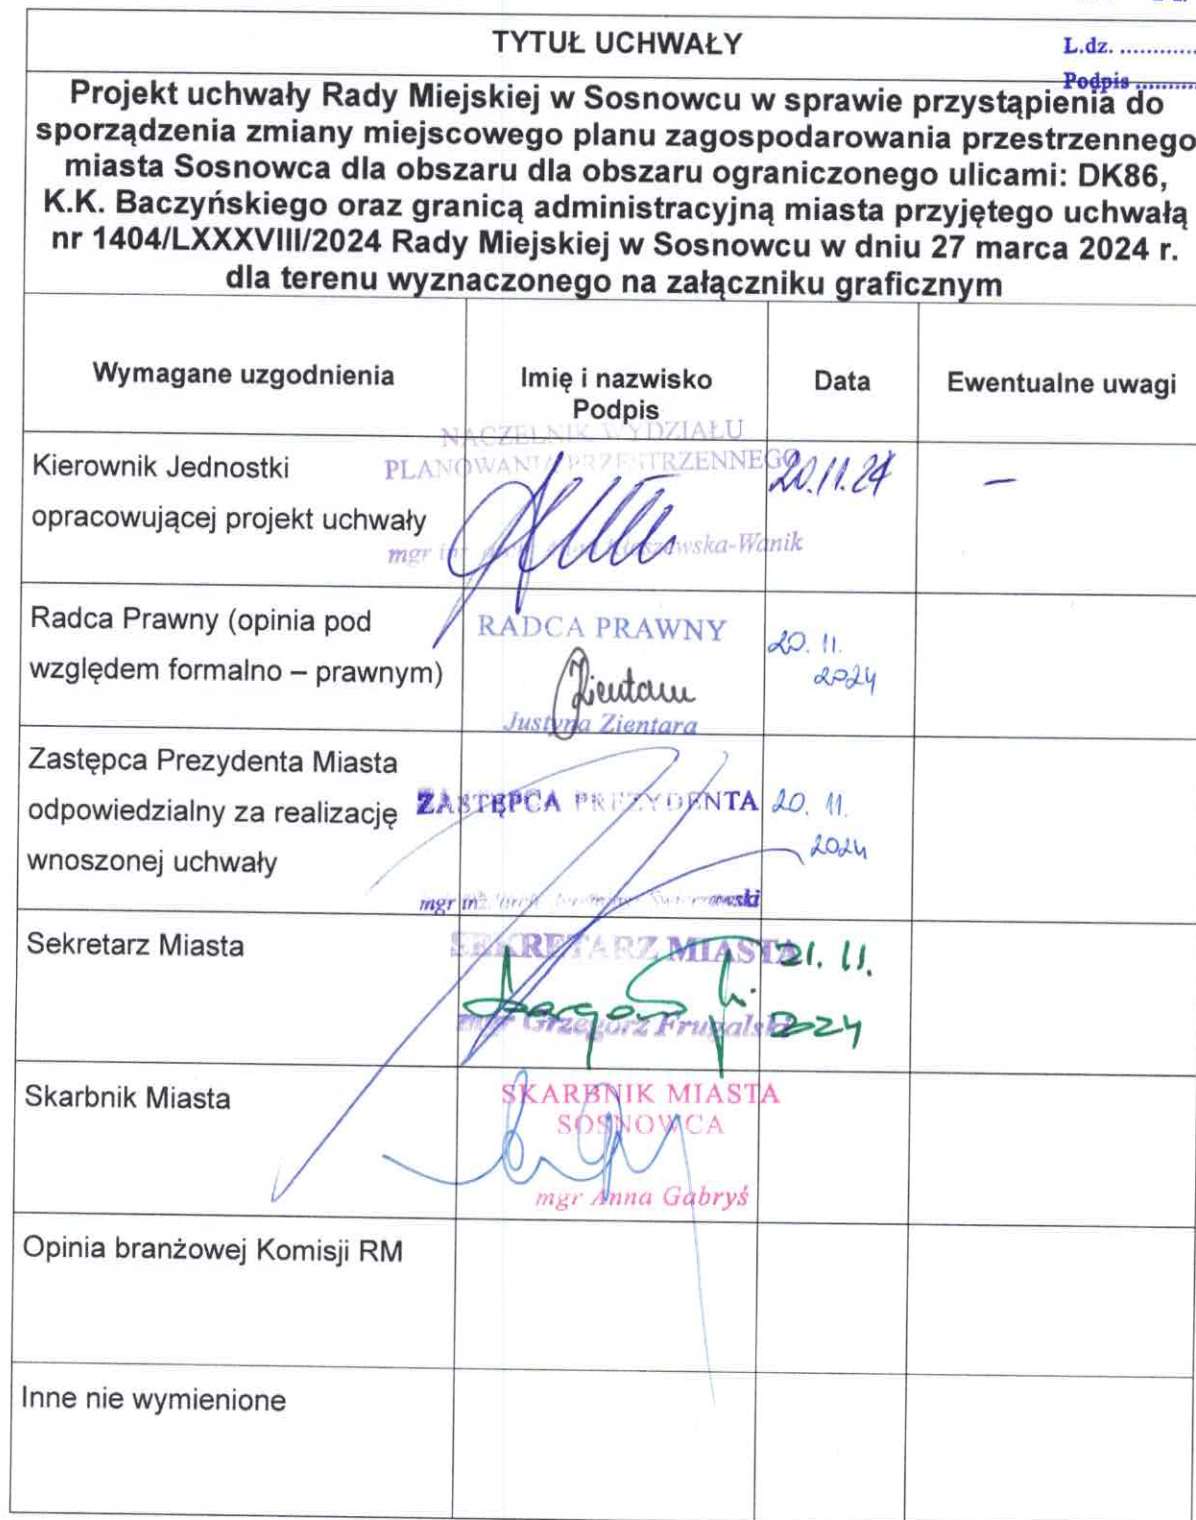 TYTUŁ UCHWAŁY
L.dz. ............
Podpis ..........
Projekt uchwały Rady Miejskiej w Sosnowcu w sprawie przystąpienia do
sporządzenia zmiany miejscowego planu zagospodarowania przestrzennego
miasta Sosnowca dla obszaru dla obszaru ograniczonego ulicami: DK86,
K.K. Baczyńskiego oraz granicą administracyjną miasta przyjętego uchwałą
nr 1404/LXXXVIII/2024 Rady Miejskiej w Sosnowcu w dniu 27 marca 2024 r.
dla terenu wyznaczonego na załączniku graficznym
Wymagane uzgodnienia
Imię i nazwisko
Podpis
Data
Ewentualne uwagi
Kierownik Jednostki
opracowującej projekt uchwały
NACZELNIK WYDZIAŁU
PLANOWANIA PRZESTRZENNEGO
mgr
wska-Wanik
20.11.24
–
Radca Prawny (opinia pod
względem formalno – prawnym)
RADCA PRAWNY
Zientara
Justyna Zientara
20. 11.
2024
Zastępca Prezydenta Miasta
odpowiedzialny za realizację
wnoszonej uchwały
ZASTĘPCA PREZYDENTA
mgr inż.
20. 11.
2024
Sekretarz Miasta
SEKRETARZ MIASTA
mgr Grzegorz Frugalski
21. 11.
2024
Skarbnik Miasta
SKARBNIK MIASTA
SOSNOWCA
mgr Anna Gabryś
Opinia branżowej Komisji RM
Inne nie wymienione